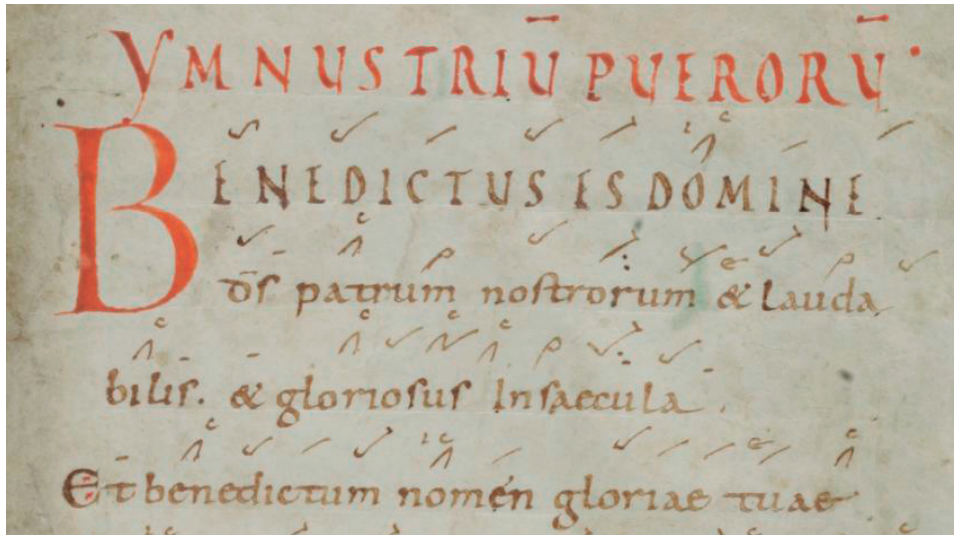 YMNUS TRIŪ PUERORŪ.
BENEDICTUS ES DOMINE
d̄s patrum nostrorum & lauda
bilis. & gloriosus Insaecula.
Et benedictum nomen gloriae tuae